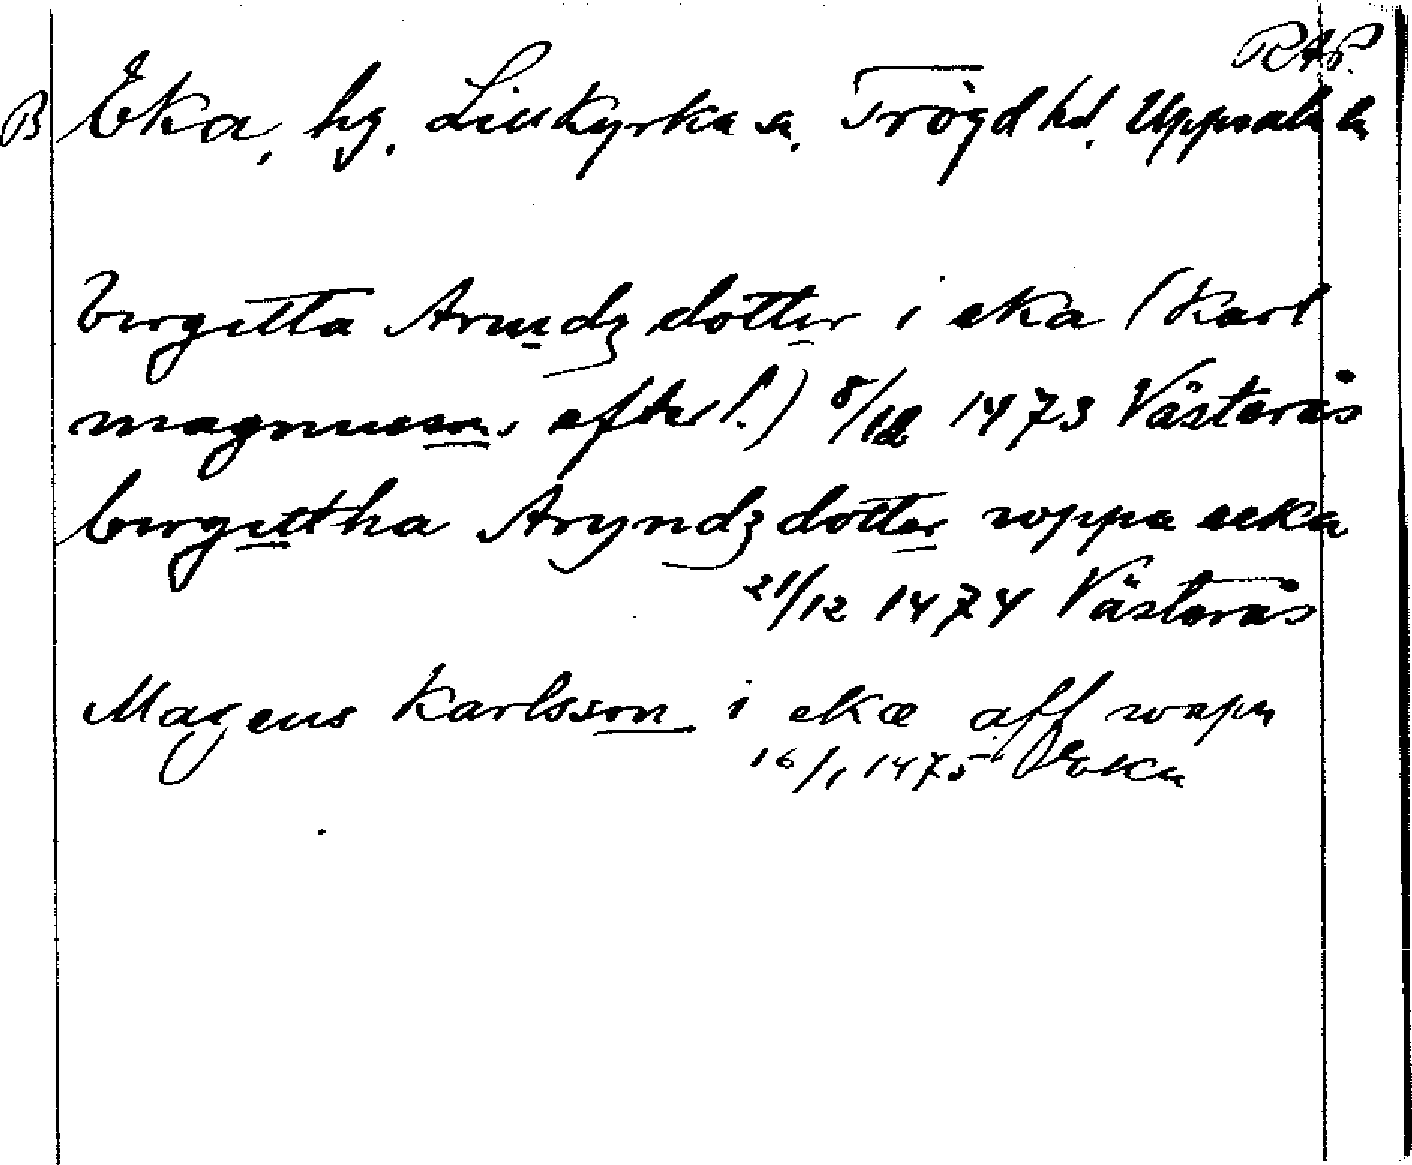 RAP.
B Eka, hg. Lillkyrka sn. Trögd hd. Uppsala ln
birgitta Arundz dotter i eka (karl
magnusons efterl.) 8/12 1473 Västerås
birgittha Aryndz dotter wppa eeka
21/12 1474 Västerås
Magens karlsson i ekæ aff wapn
16/1 1475 Eka